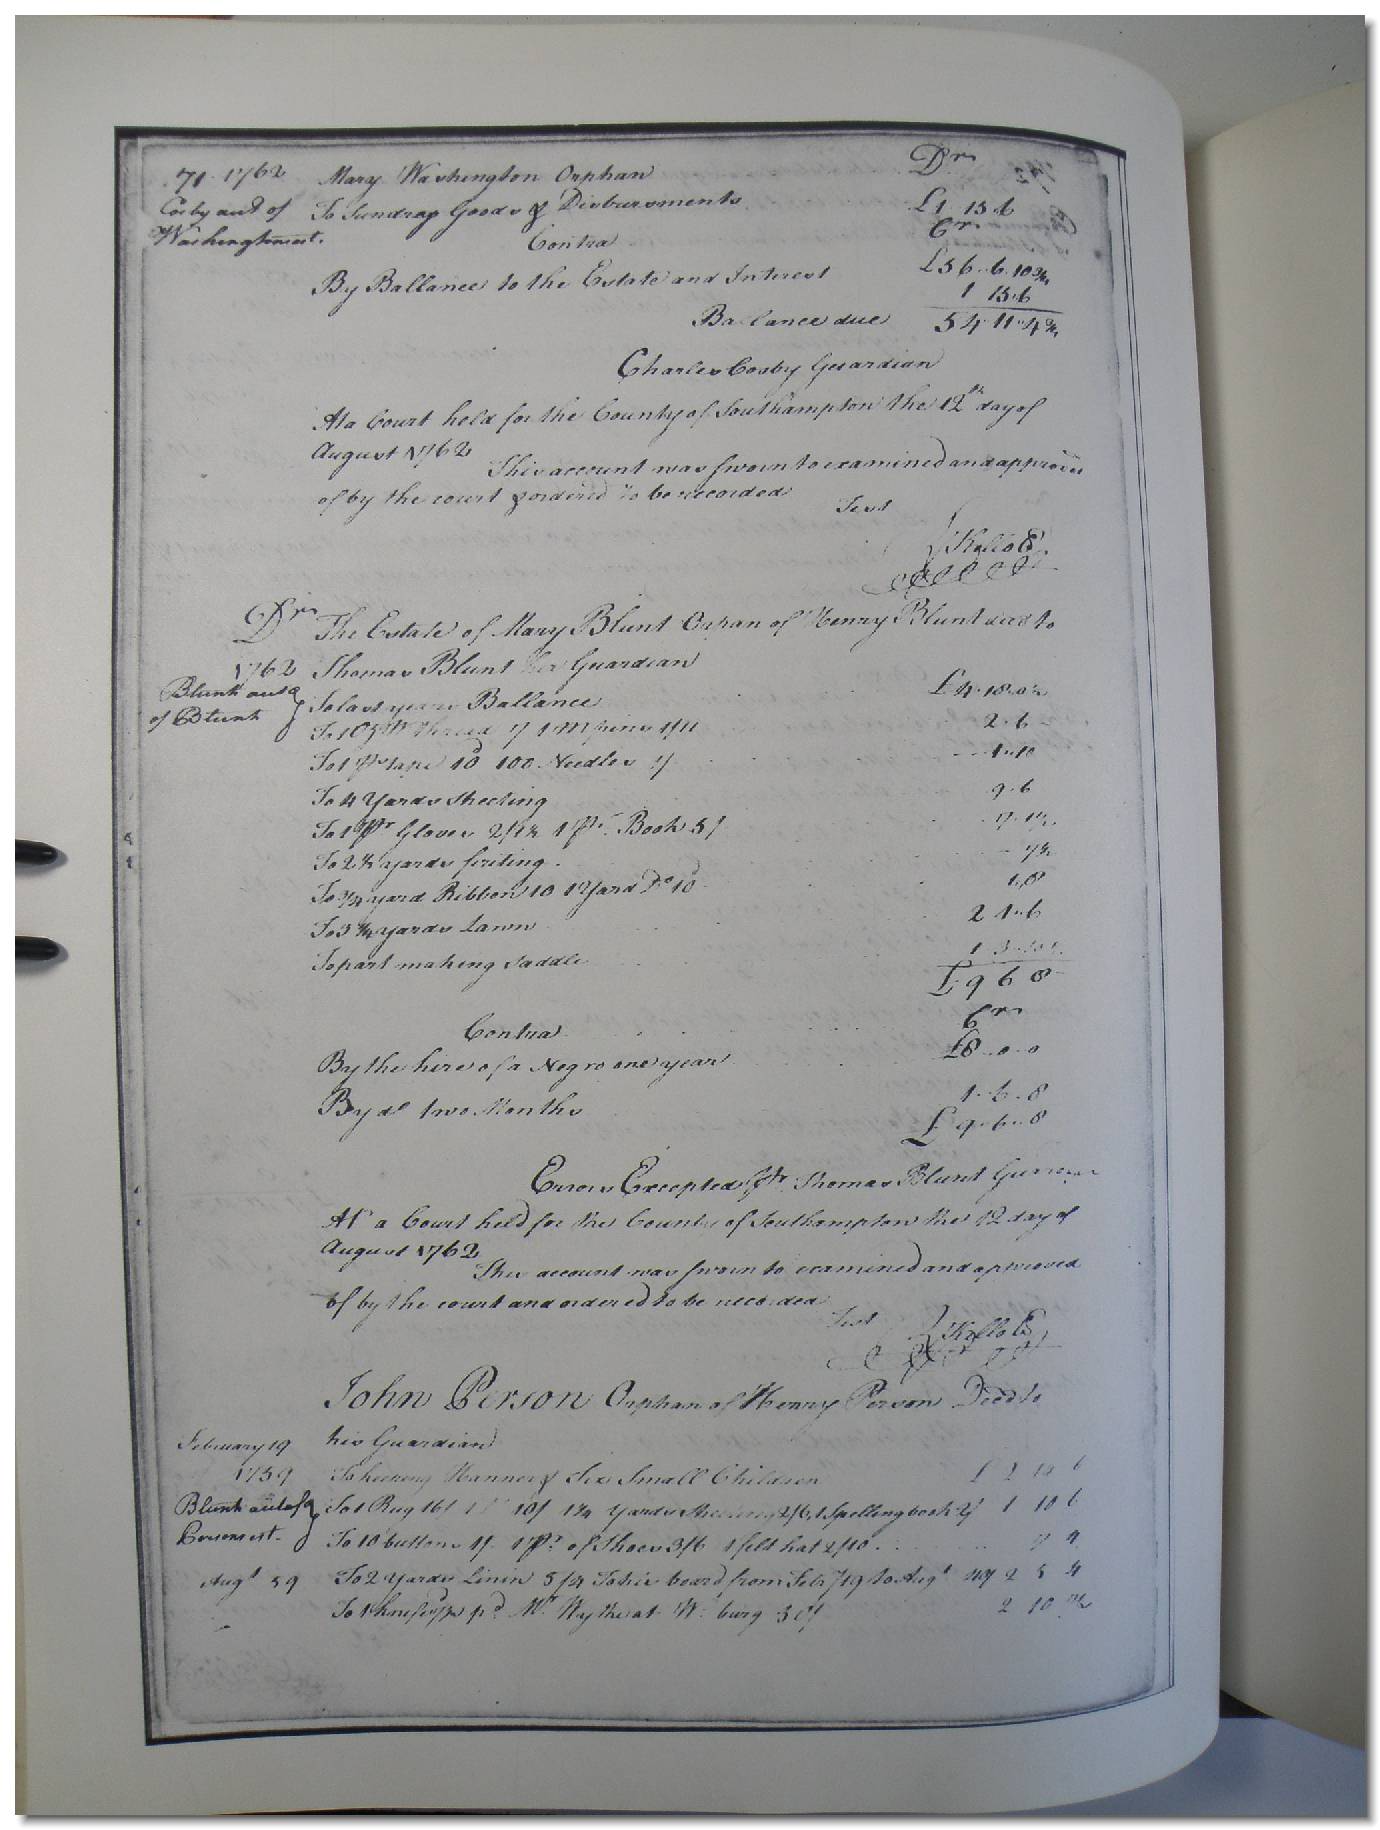 71 1762 Mary Washington Orphan Dr
Cosby acct of To Sundray Goods & Disbursments £1 15 6
Washingtonest. Contra Cr
By Ballance to the Estate and Interest £56..6.10¾
1 15.6
Ballance due 54.11.4¾
Charles Cosby Guardian
At a Court held for the County of Southampton the 12th day of
August 1762
This account was sworn to examined and approved
of by the court & ordered to be recorded
Test
Kello
Dr The Estate of Mary Blunt Orpan of Henry Blunt decd to
1762 Thomas Blunt her Guardian
Blunt acct
of Blunt To last years Ballance
2.6
To 1 ps tape 10d 100 Needles 1/ 1.10
To 4 Yards Sheeting 9.6
To 1 pr Gloves 1 pr. Book 5/
To 2½ yards
To yard Ribbon 10 1 Yard Do 10d 1.8
To 3¾ yards Lawn 2 1.6
To part making Saddle 1
£9 6 8
Contra Cr
By the hire of a Negro one year £8..0..0
By do two Months 1..6..8
£9..6..8
Errors Excepted pr Thomas Blunt
At a Court held for the County of Southampton the 12 day of
August 1762
This account was sworn to examined and approved
of by the court and ordered to be recorded
Test
Kello
John Person Orphan of Henry Person Decd to
February 19 his Guardian
1759 To keeping Hanner & Six Small Children £ 2
Blunt acct of To 1 Rug 16/ 10/ 1¾ yards Sheeting 2/6, 1 Spelling book 2/ 1 10 6
Personest. To 10 buttons 1/ 1 pr of Shoes 3/6 1 felt hat 2/10
Augt 59 To 2 yards Linin 5/4 To his board from Feb 19 to Augt 2 5 4
To pd Mr Wythe at Wm burg 50/ 2 10